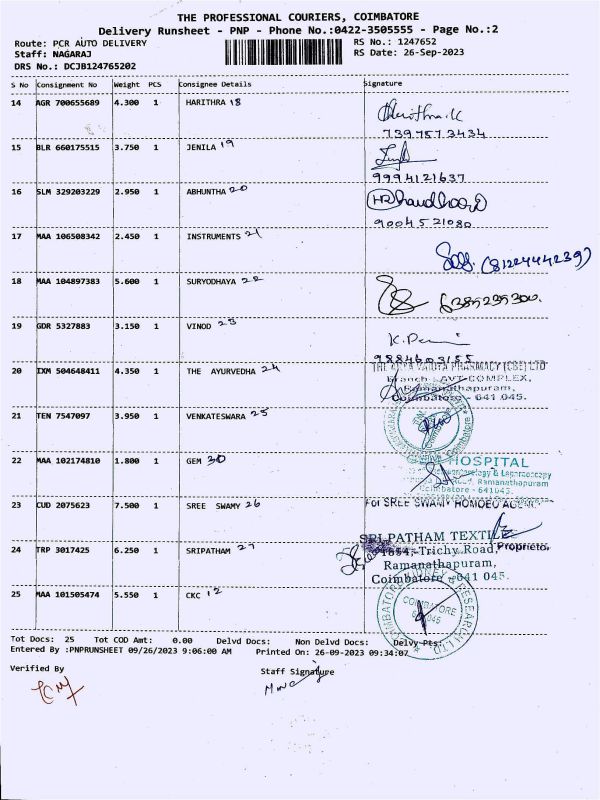 THE PROFESSIONAL COURIERS, COIMBATORE
Delivery Runsheet - PNP - Phone No.:0422-3505555 - Page No.:2
Route: PCR AUTO DELIVERY RS No.: 1247652
Staff: NAGARAJ RS Date: 26-Sep-2023
DRS No.: DCJB124765202
S No Consignment No Weight PCS Consignee Details Signature
14 AGR 700655689 4.300 1 HARITHRA 18
7397573434
15 BLR 660175515 3.750 1 JENILA 19
9994121637
16 SLM 329203229 2.950 1 ABHUNTHA 20
9004521080
17 MAA 106508342 2.450 1 INSTRUMENTS 21
(8122444239)
18 MAA 104897383 5.600 1 SURYODHAYA 22
6385239300.
19 GDR 5327883 3.150 1 VINOD 23
9884603155
20 IXM 504648411 4.350 1 THE AYURVEDHA 24
PHARMACY (CBE) LTD
Branch - AVT COMPLEX,
Ramanathapuram,
Coimbatore - 641 045.
21 TEN 7547097 3.950 1 VENKATESWARA 25
22 MAA 102174810 1.800 1 GEM 30
HOSPITAL
Ramanathapuram
Coimbatore - 641045.
23 CUD 2075623 7.500 1 SREE SWAMY 26
For SREE SWAMY HOMOEO
Proprietor
24 TRP 3017425 6.250 1 SRIPATHAM 27
SRI PATHAM TEXTILE
1884, Trichy Road,
Ramanathapuram,
Coimbatore - 641 045.
25 MAA 101505474 5.550 1 CKC 12
COIMBATORE KIDNEY & RESEARCH LTD
COIMBATORE
Tot Docs: 25 Tot COD Amt: 0.00 Delvd Docs: Non Delvd Docs: Delvy Pts:
Entered By :PNPRUNSHEET 09/26/2023 9:06:00 AM Printed On: 26-09-2023 09:34:07
Verified By Staff Signature